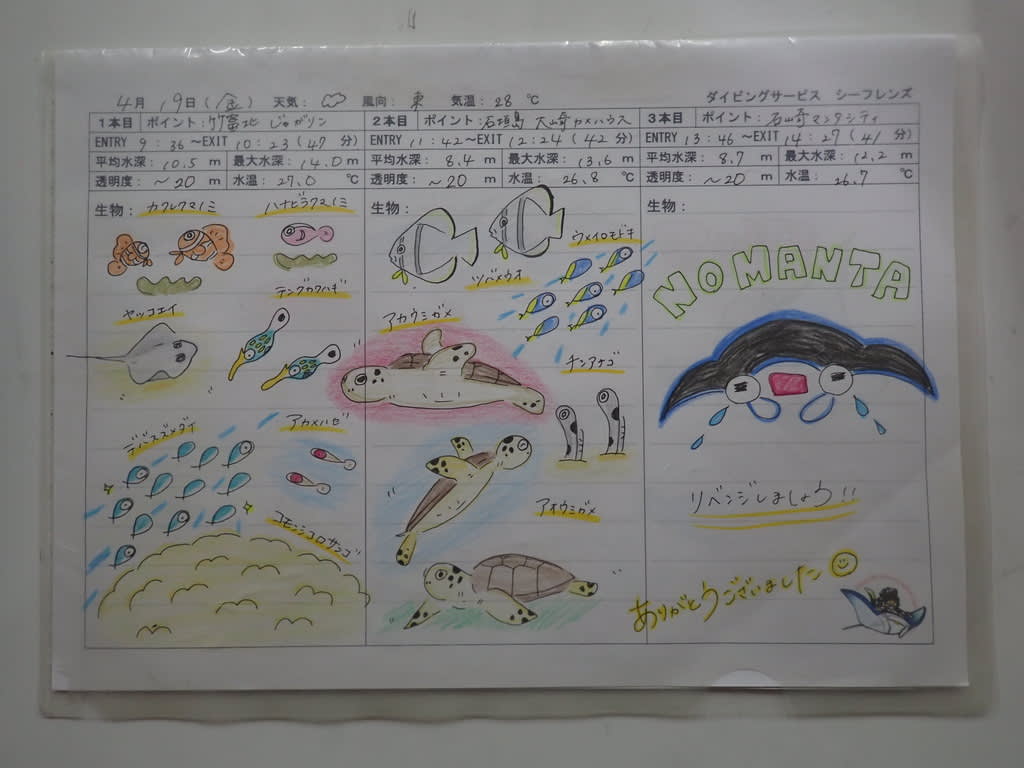 4月 19日(金) 天気: 風向: 東 気温: 28 ℃ ダイビングサービス シーフレンズ
1本目 ポイント: 竹富北 じゃがリン
ENTRY 9 : 36 ～EXIT 10 : 23 ( 47 分)
平均水深: 10.5 m 最大水深: 14.0 m
透明度: ～20 m 水温: 27.0 ℃
生物: カクレクマノミ ハナビラクマノミ
テングカワハギ
ヤッコエイ
デバスズメダイ アカメハゼ
コモンシコロサンゴ
2本目 ポイント: 石垣島 大崎カメハウス
ENTRY 11 : 42 ～EXIT 12 : 24 ( 42 分)
平均水深: 8.4 m 最大水深: 13.6 m
透明度: ～20 m 水温: 26.8 ℃
生物:
ウメイロモドキ
ツバメウオ
アカウミガメ
チンアナゴ
アオウミガメ
3本目 ポイント: 石崎マンタシティ
ENTRY 13 : 46 ～EXIT 14 : 27 ( 41 分)
平均水深: 8.7 m 最大水深: 12.2 m
透明度: ～20 m 水温: 26.7 ℃
生物:
NO MANTA
リベンジしましょう!!
ありがとうございました